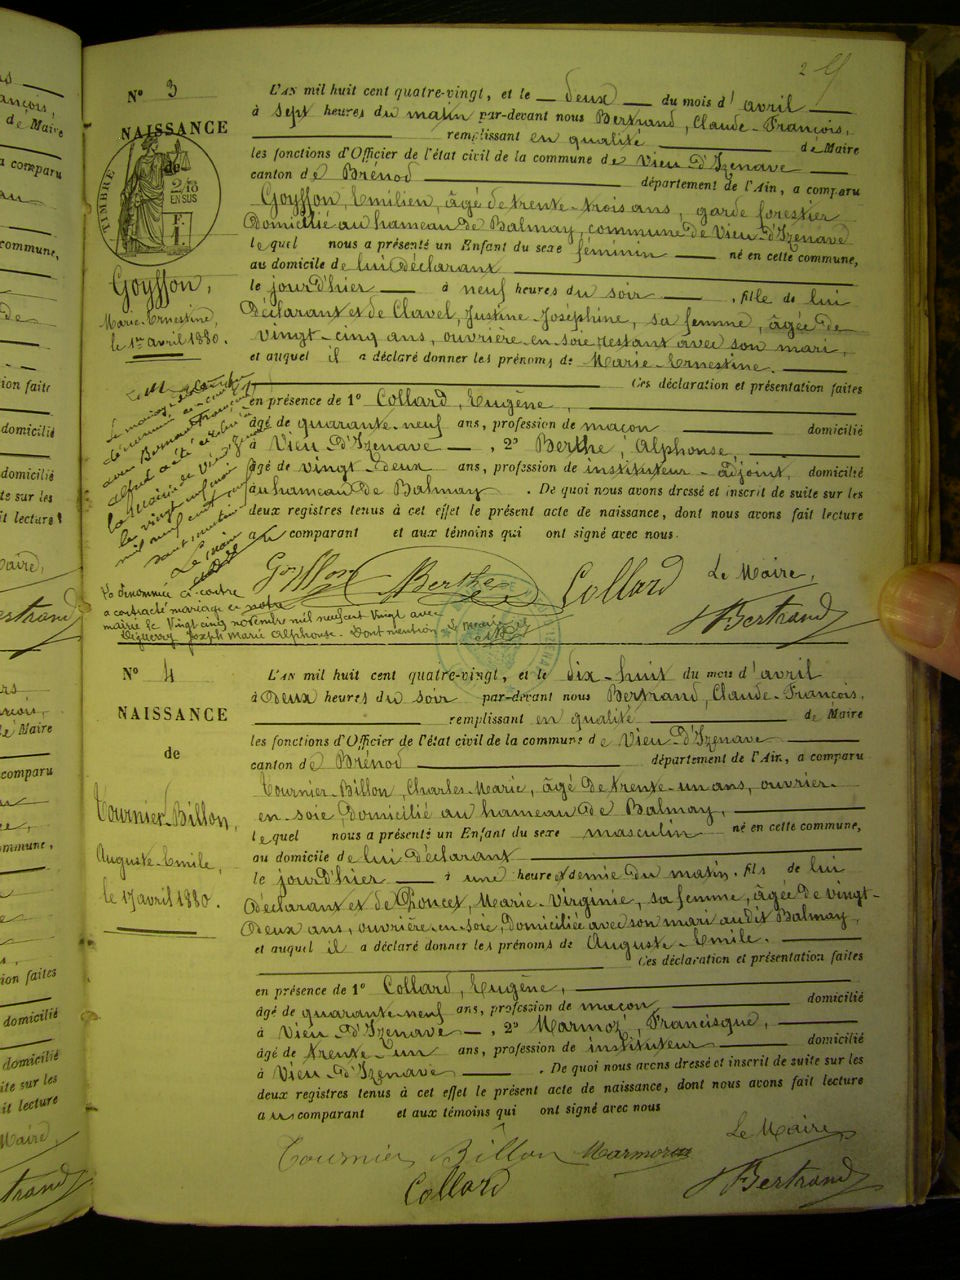 2
Nº 3
NAISSANCE
de
TIMBRE
2/10
EN SUS
F.
1.
Goyffon,
Marie-Ernestine,
le 1er avril 1880.
L'AN mil huit cent quatre-vingt, et le deux du mois d'avril
à sept heures du matin par-devant nous Bertrand, Claude-François,
remplissant en qualité de Maire
les fonctions d'Officier de l'état civil de la commune de Vieu-d'Izenave
canton de Brénod département de l'Ain, a comparu
Goyffon, Emilien, âgé de trente-trois ans, garde forestier
domicilié au hameau de Balmay, commune de Vieu-d'Izenave
lequel nous a présenté un Enfant du sexe féminin né en cette commune,
au domicile de lui déclarant
le jour d'hier à neuf heures du soir, fille de lui
déclarant et de Chavel, Justine-Joséphine, sa femme, âgée de
vingt-cinq ans, ouvrière en soie restant avec son mari,
et auquel il a déclaré donner les prénoms de Marie-Ernestine.
Ces déclaration et présentation faites
en présence de 1º Collard, Eugène,
âgé de quarante-neuf ans, profession de maçon domicilié
à Vieu-d'Izenave, 2º Berthe, Alphonse,
âgé de vingt-deux ans, profession de instituteur-adjoint, domicilié
au hameau de Balmay. De quoi nous avons dressé et inscrit de suite sur les
deux registres tenus à cet effet le présent acte de naissance, dont nous avons fait lecture
au comparant et aux témoins qui ont signé avec nous.
Le mariage de
avec Bernard François
Alfred a été célébré à
la Mairie de Vieu d'Izenave
le vingt neuf
mil neuf cent
Le Maire
Goyffon Berthe Collard Le Maire,
Bertrand
La dénommée ci-contre
a contracté mariage en notre
mairie le vingt cinq novembre mil neuf cent vingt avec
Joseph Marie Alphonse. Dont mention
Nº 4
NAISSANCE
de
Tournier-Billon,
Auguste-Emile,
le 17 avril 1880.
L'AN mil huit cent quatre-vingt, et le dix-huit du mois d'avril
à deux heures du soir par-devant nous Bertrand, Claude-François,
remplissant en qualité de Maire
les fonctions d'Officier de l'état civil de la commune de Vieu-d'Izenave
canton de Brénod département de l'Ain, a comparu
Tournier-Billon, Charles-Marie, âgé de trente-un ans, ouvrier-
en-soie, domicilié au hameau de Balmay,
lequel nous a présenté un Enfant du sexe masculin né en cette commune,
au domicile de lui déclarant
le jour d'hier à une heure et demie du matin, fils de lui
déclarant et de Poncet, Marie-Virginie, sa femme, âgée de vingt-
deux ans, ouvrière-en-soie, domiciliée avec son mari audit Balmay,
et auquel il a déclaré donner les prénoms de Auguste-Emile.
Ces déclaration et présentation faites
en présence de 1º Collard, Eugène,
âgé de quarante-neuf ans, profession de maçon domicilié
à Vieu-d'Izenave, 2º Marmoz, Francisque,
âgé de trente-un ans, profession de instituteur domicilié
à Vieu-d'Izenave. De quoi nous avons dressé et inscrit de suite sur les
deux registres tenus à cet effet le présent acte de naissance, dont nous avons fait lecture
au comparant et aux témoins qui ont signé avec nous
Le Maire
Tournier Billon
Collard
Bertrand